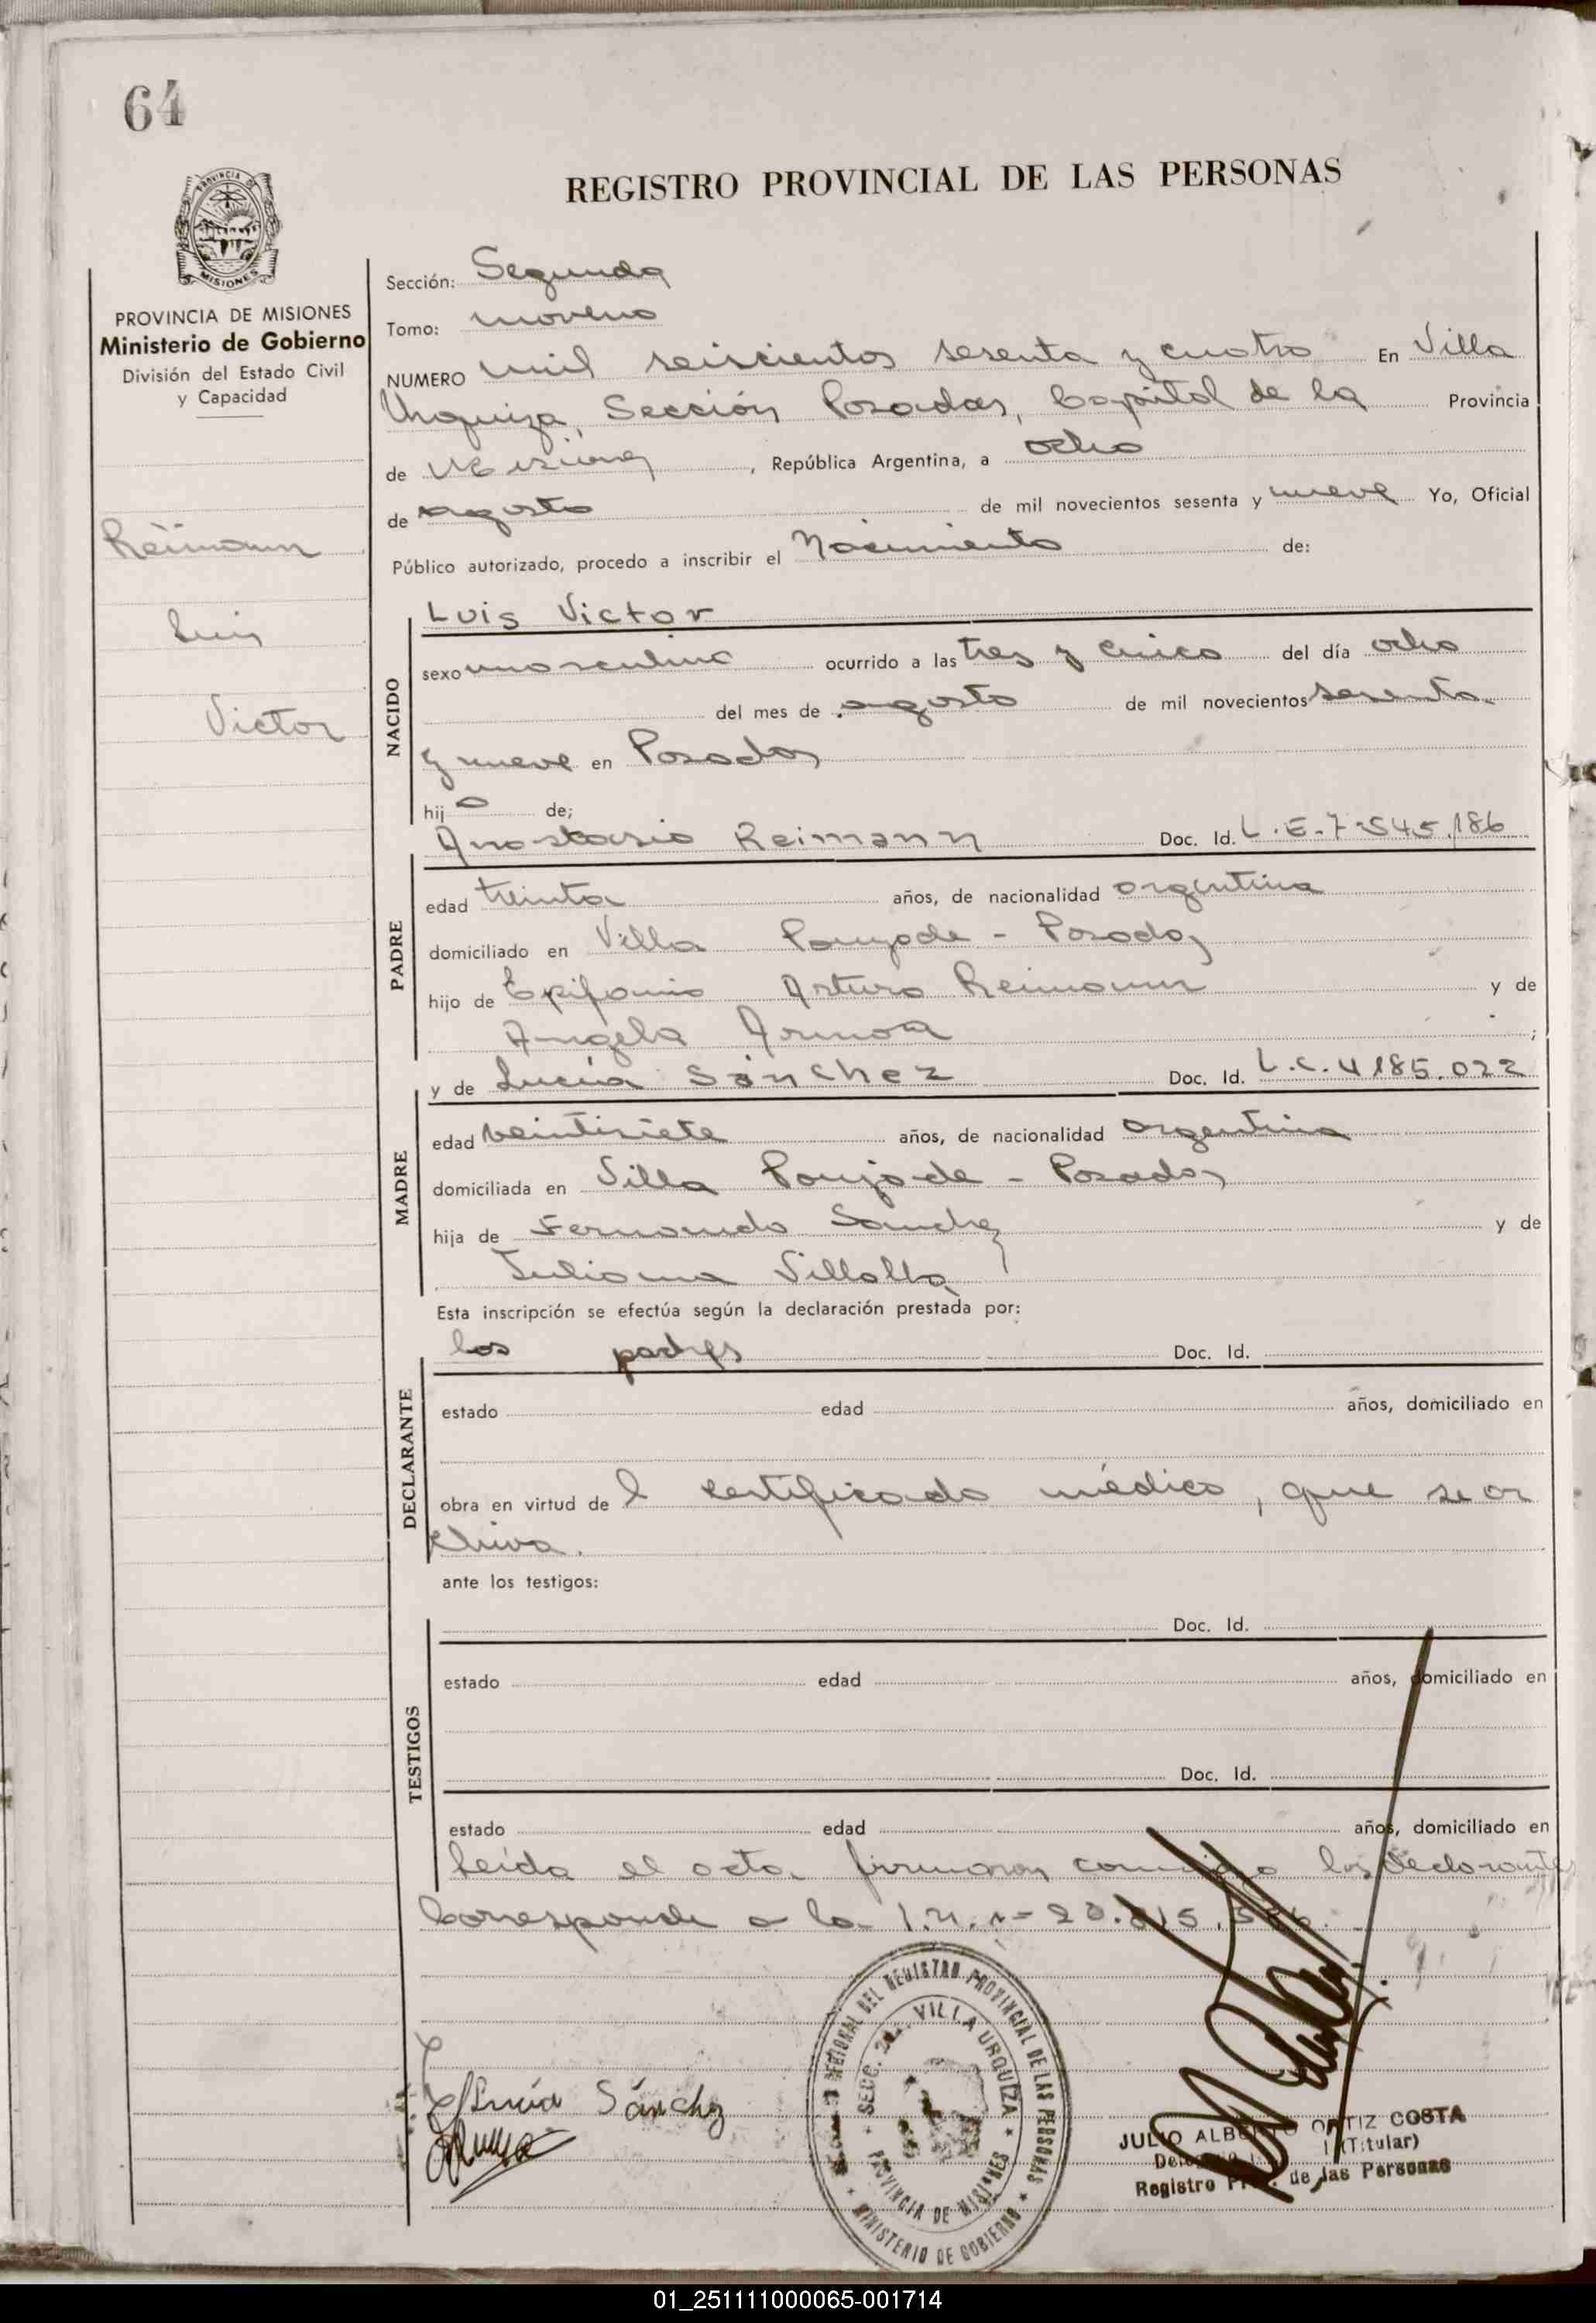 64
REGISTRO PROVINCIAL DE LAS PERSONAS
PROVINCIA DE MISIONES
Ministerio de Gobierno
División del Estado Civil
y Capacidad
Reimann
Luis
Victor
Sección: Segunda
Tomo: moreno
NUMERO mil seiscientos sesenta y cuatro En Villa
Urquiza, Sección Posadas, Capital de la Provincia
de Misiones, República Argentina, a ocho
de agosto de mil novecientos sesenta y nueve Yo, Oficial
Público autorizado, procedo a inscribir el Nacimiento de:
NACIDO
Luis Victor
sexo masculino ocurrido a las tres y cinco del día ocho
del mes de agosto de mil novecientos sesenta
y nueve en Posadas
hijo de;
PADRE
Anastasio Reimann Doc. Id. L.E. 7.545.186
edad treinta años, de nacionalidad argentina
domiciliado en Villa Poujade - Posadas
hijo de Epifanio Arturo Reimann y de
Angela Armoa;
MADRE
y de Lucía Sánchez Doc. Id. L.C. 4185.022
edad veintisiete años, de nacionalidad argentina
domiciliada en Villa Poujade - Posadas
hija de Fernando Sanchez y de
Juliana Villalba
Esta inscripción se efectúa según la declaración prestada por:
DECLARANTE
los padres Doc. Id.
estado edad años, domiciliado en
obra en virtud de l certificado médico, que se ar
chiva.
ante los testigos:
TESTIGOS
Doc. Id.
estado edad años, domiciliado en
Doc. Id.
estado edad años, domiciliado en
Leída el acta, firmaron conmigo los declarantes
Corresponde a la
Lucía Sánchez
REGIONAL DEL REGISTRO PROVINCIAL DE LAS PERSONAS
SECC. 2a. VILLA URQUIZA
PROVINCIA DE MISIONES
MINISTERIO DE GOBIERNO
JULIO ALBERTO ORTIZ COSTA
(Titular)
Registro de las Personas
01_251111000065-001714